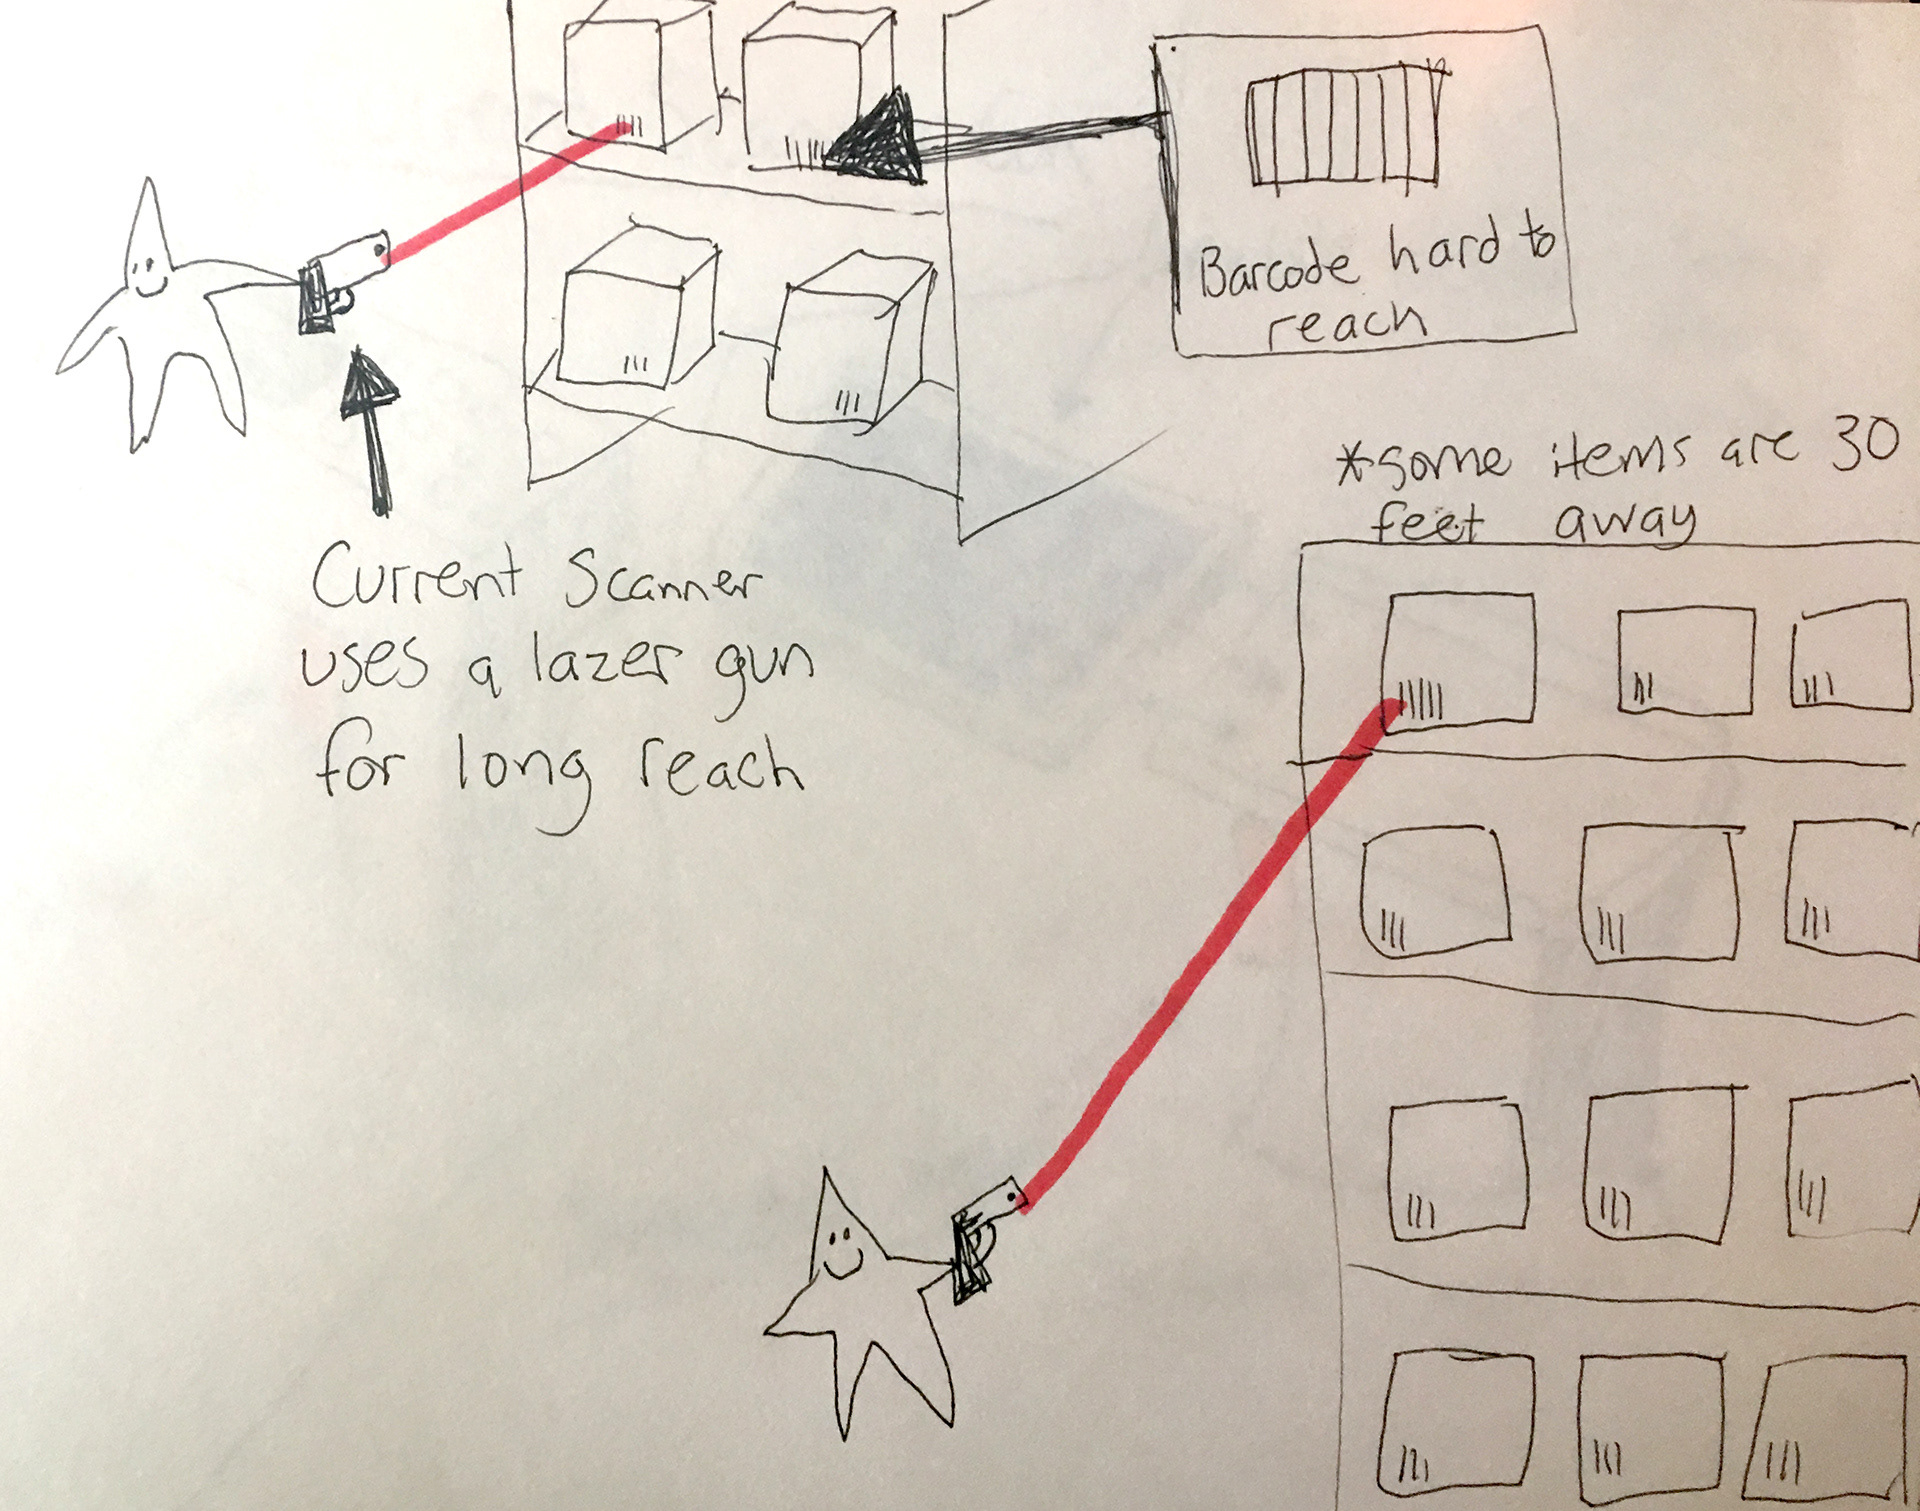 Barcode hard to
reach
*some items are 30
feet away
Current Scanner
uses a lazer gun
for long reach